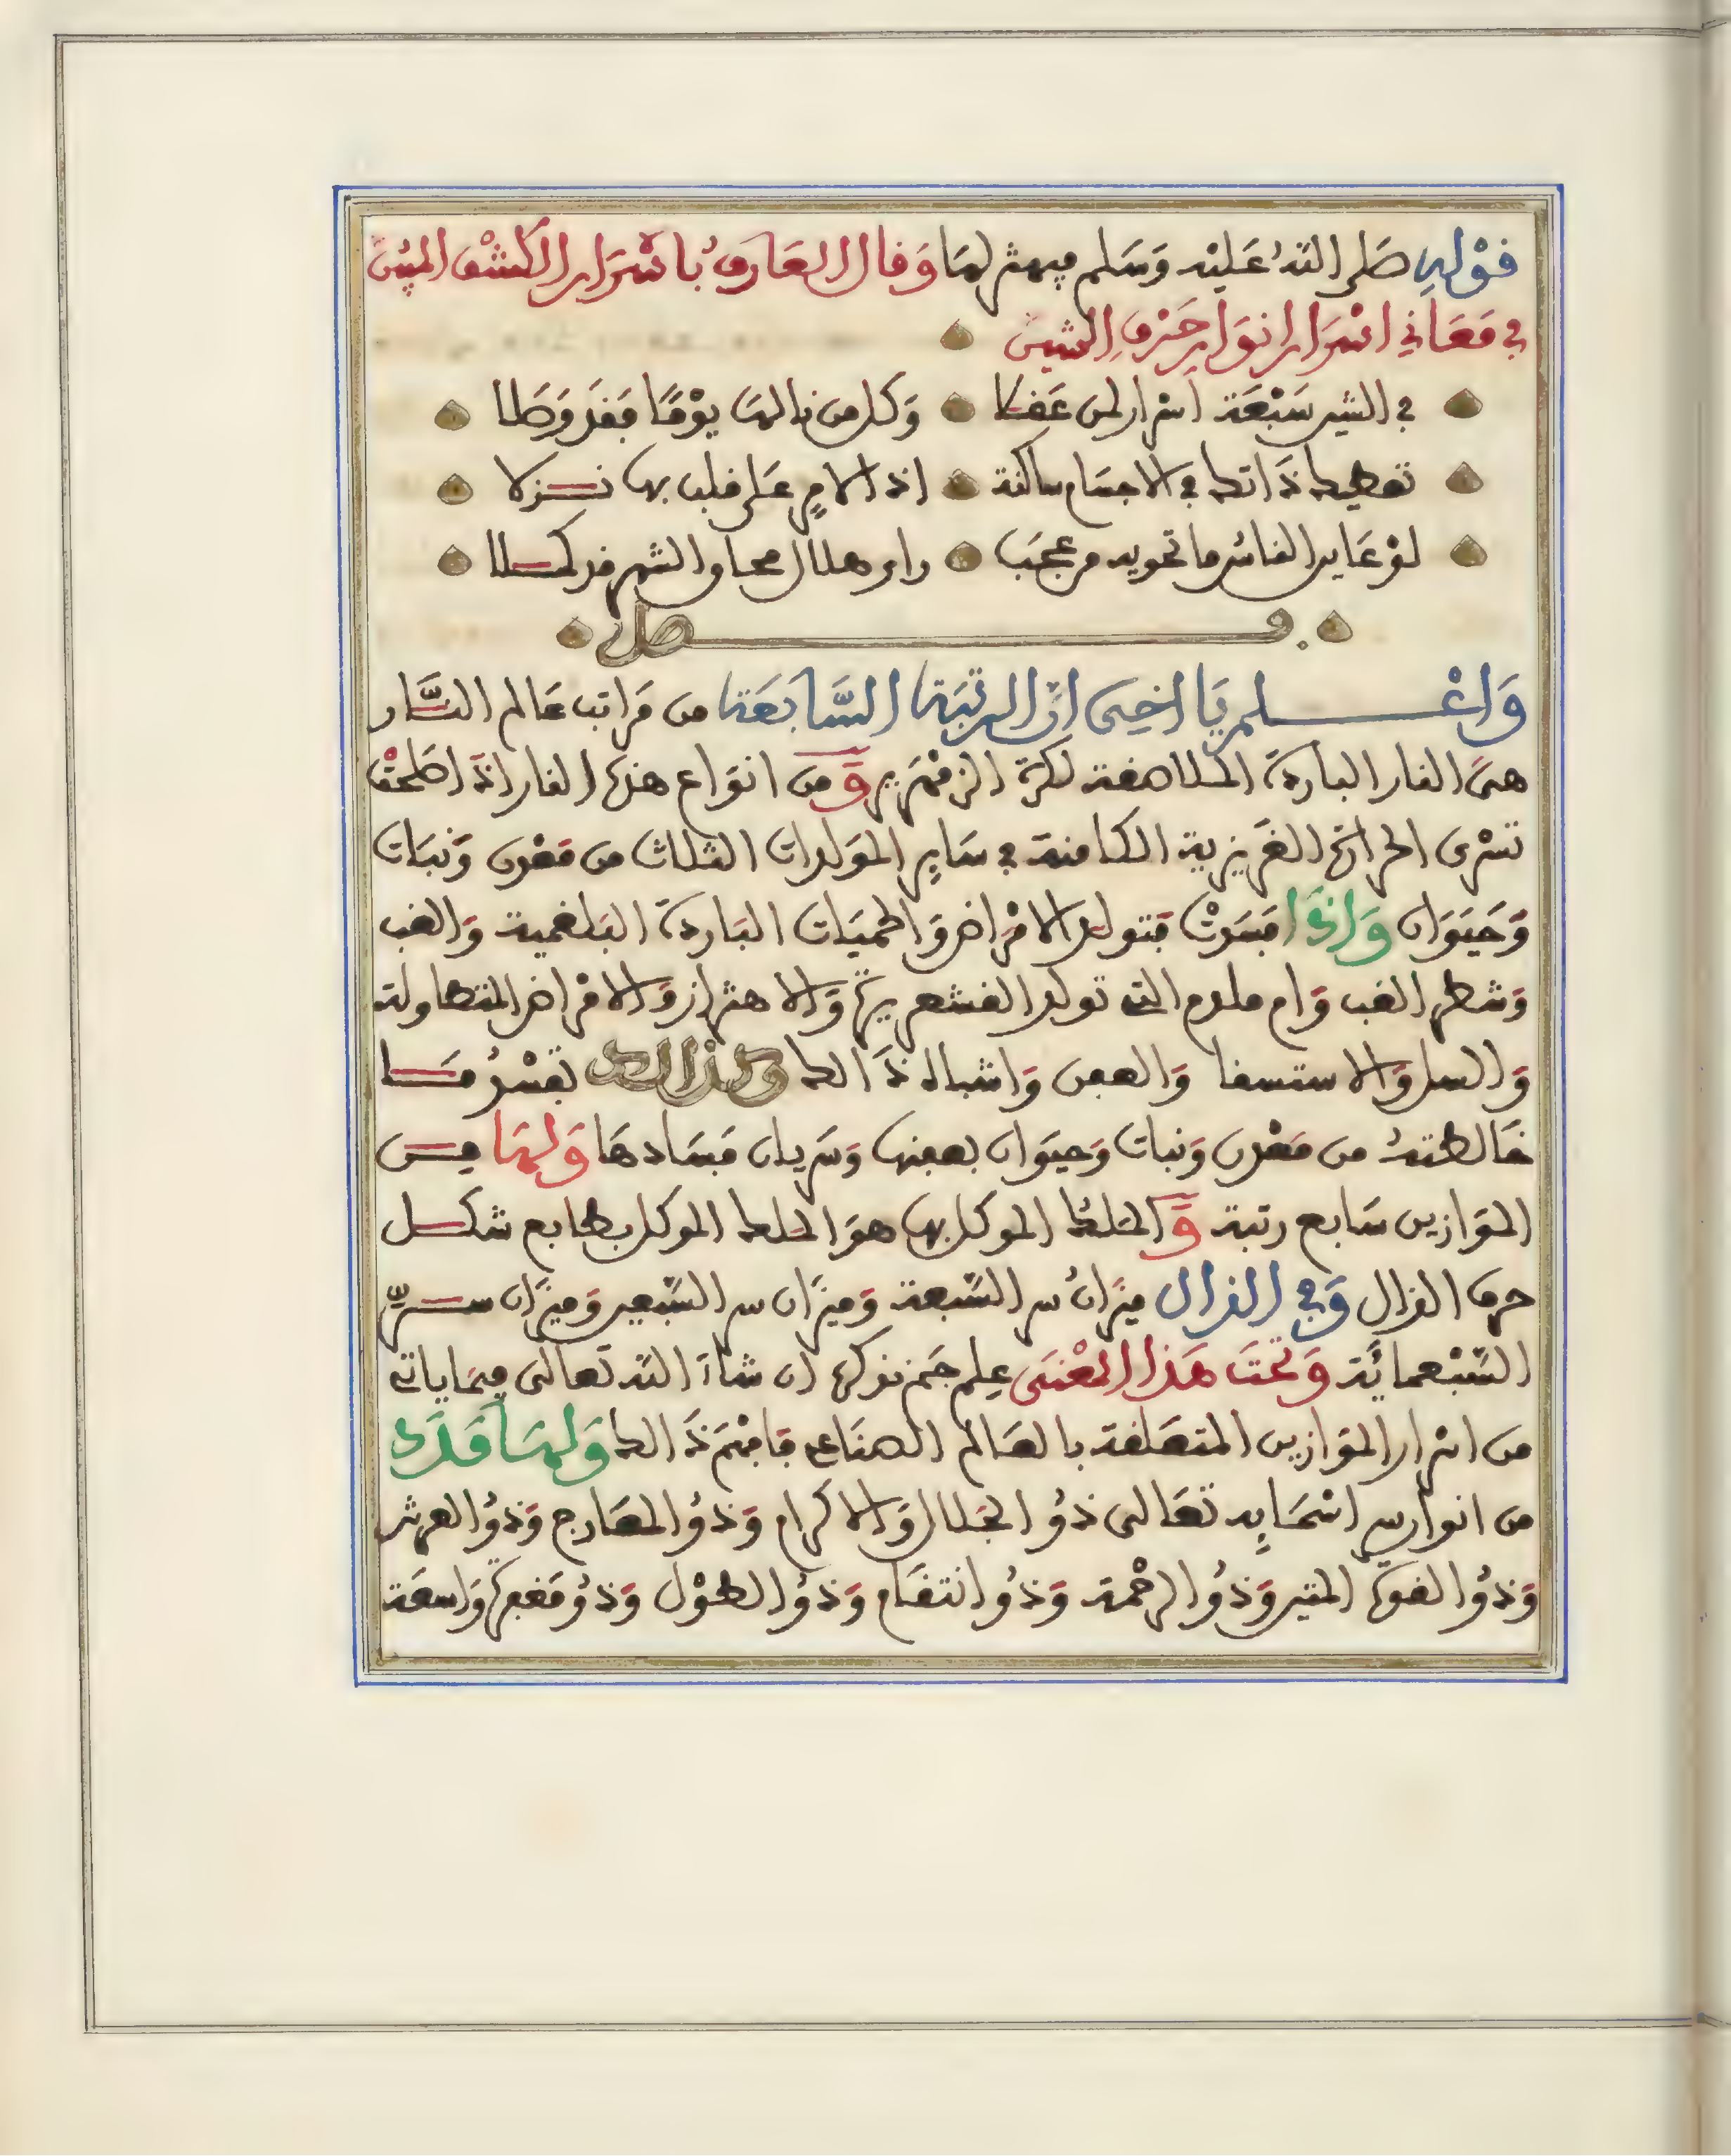 قوله صلى الله عليه وسلم فيهش لها وقال العارف باسرار الكشف المبين
في معاني اسرار انوار حرف الشين
في الشين سبعة اسرار لمن عقلا وكل من نالها يوما فقد وصلا
تعطيك ذاتك في الاجسام ساكنة اذ الامين على قلب بها نزلا
لو عاين الناس ما تحويه من عجب راو هلال محاق الشهر قد كملا
فصل
واعلم يا اخي ان الرتبة السابعة من مراتب عالم النار
هي النار الباردة الملاصقة لكرة الزمهرير ومن انواع هذه النار اذا صلحت
تسرى الحرارة الغريزية الكامنة في ساير المولدات الثلاث من معدن ونبات
وحيوان واذا فسدت فتولد الامراض والحميات الباردة البلغمية والغب
وشطر الغب وام ملدم التي تولد القشعريرة والاهتزاز والامراض المتطاولة
والسل والاستسقا والعفن واشباه ذالك وكذالك تفسد ما
خالطته من معدن ونبات وحيوان بعفنها وسريان فسادها ولها من
الموازين سابع رتبة والملك الموكل بها هو الملك الموكل بطابع شكل
حرف الذال وفي الذال ميزان سر السبعة وميزان سر السبعين وميزان سر
السبعمائة وتحت هذا المعنى علم جم نذكره ان شاء الله تعالى فيما ياتي
من اسرار الموازين المتعلقة بالعالم الصناعي فافهم ذالك ولها مدد
من انوار سر اسمايه تعالى ذو الجلال والاكرام وذو المعارج وذو العرش
وذو القوة المتين وذو الرحمة وذو انتقام وذو الطول وذو مغفرة واسعة